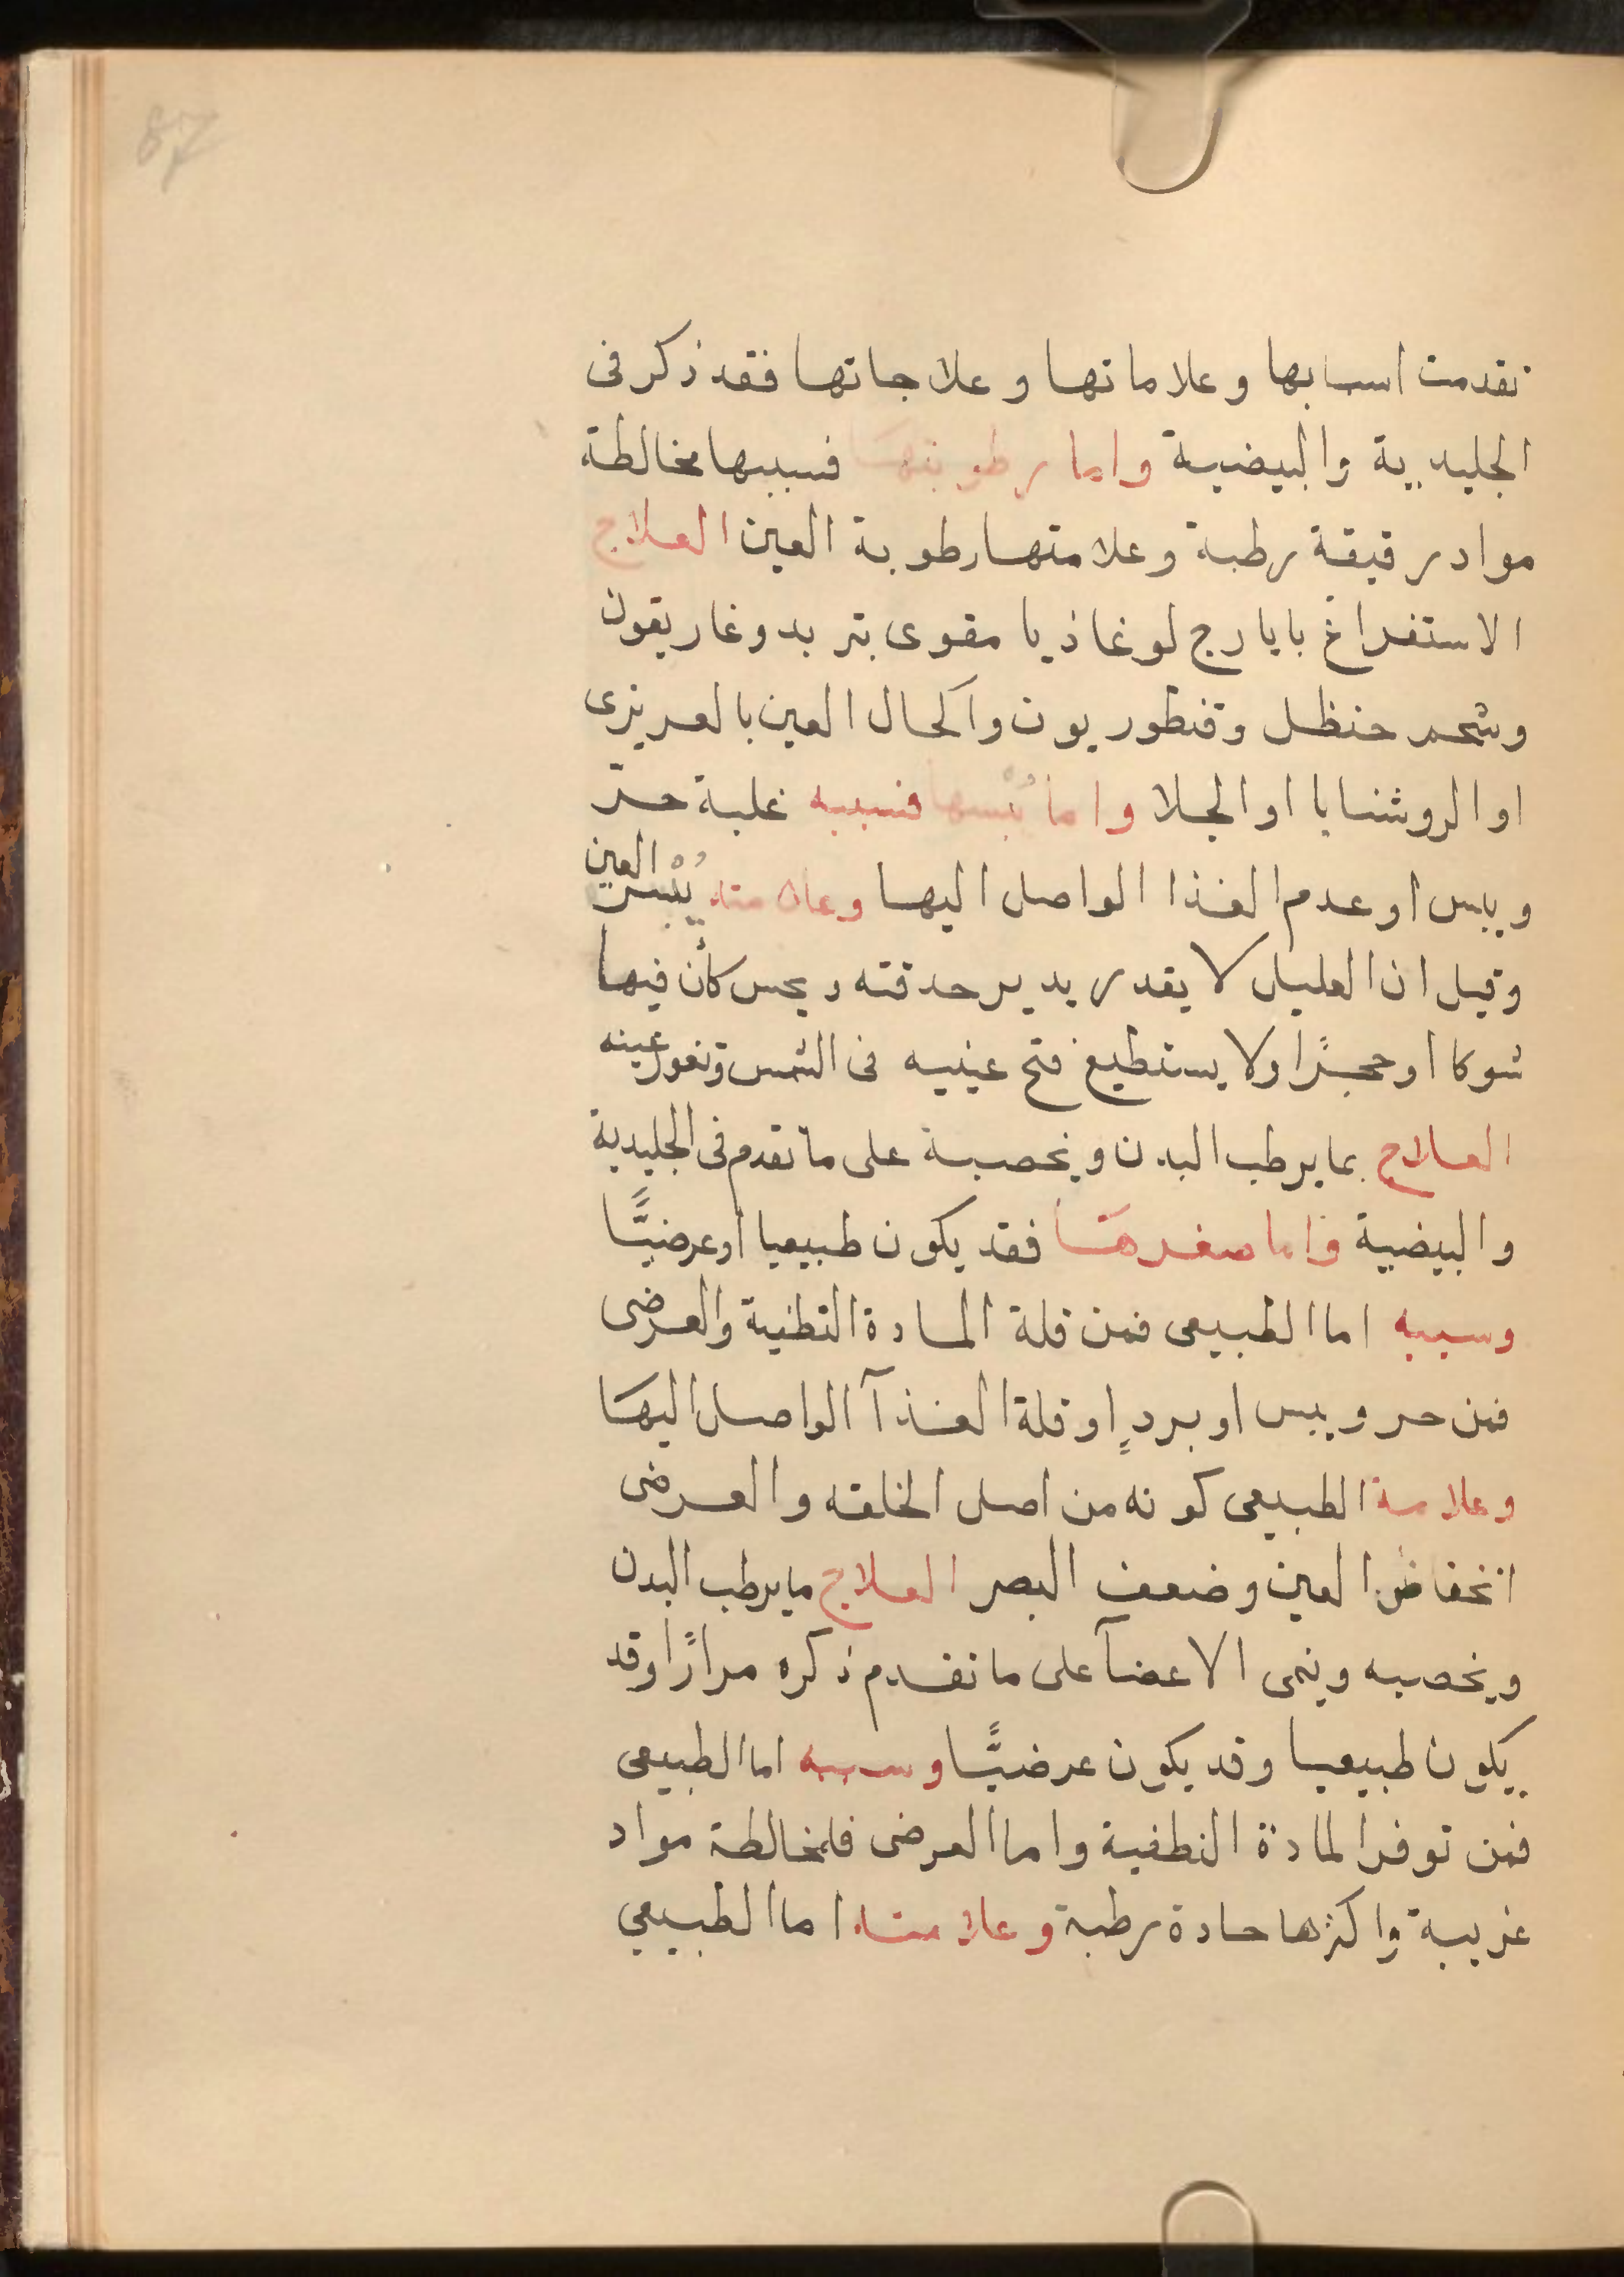 87
تقدمت اسبابها وعلاماتها وعلاجاتها فقد ذكر فى
الجليدية والبيضية واما رطوبتها فسببها مخالطة
مواد رقيقة رطبة وعلامتها رطوبة العين العلاج
الاستفراغ بايارج لوغاذيا مقوى بتربد وغاريقون
وشحم حنظل وقنطوريون واكحال العين بالعزيزى
او الروشنايا او الجلا واما يُبْسها فسببه غلبة حر
ويبس او عدم الغذا الواصل اليها وعلامته يُبْس العين
وقيل ان العليل لا يقدر يدير حدقته ويحس كأن فيها
شوكا او حجرًا ولا يستطيع فتح عينيه فى الشمس وتغور عينه
العلاج بما يرطب البدن ويخصبه على ما تقدم فى الجليدية
والبيضية واما صغرها فقد يكون طبيعيا او عرضيًّا
وسببه اما الطبيعى فمن قلة المادة النطفية والعرضى
فمن حر ويبس او بردٍ او قلة الغذآ الواصل اليها
وعلامة الطبيعى كونه من اصل الخلقه والعرضى
انخفاض العين وضعف البصر العلاج ما يرطب البدن
ويخصبه وينمى الاعضآ على ما تقدم ذكره مرارًا وقد
يكون طبيعيا وقد يكون عرضيًّا وسببه اما الطبيعى
فمن توفر المادة النطفية واما العرضى فلمخالطة مواد
غريبة واكثرها حادة رطبة وعلامته اما الطبيعي